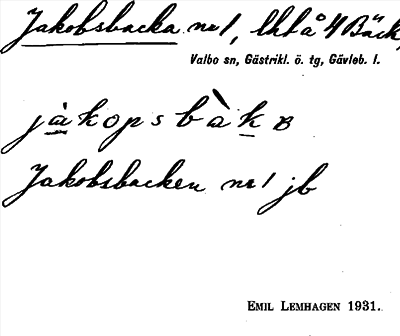 Jakobsbacka nr 1, lht å 4 Bäck,
Valbo sn, Gästrikl. ö. tg, Gävleb. l.
jàkopsbàkB
Jakobsbacken nr 1 jb
EMIL LEMHAGEN 1931.